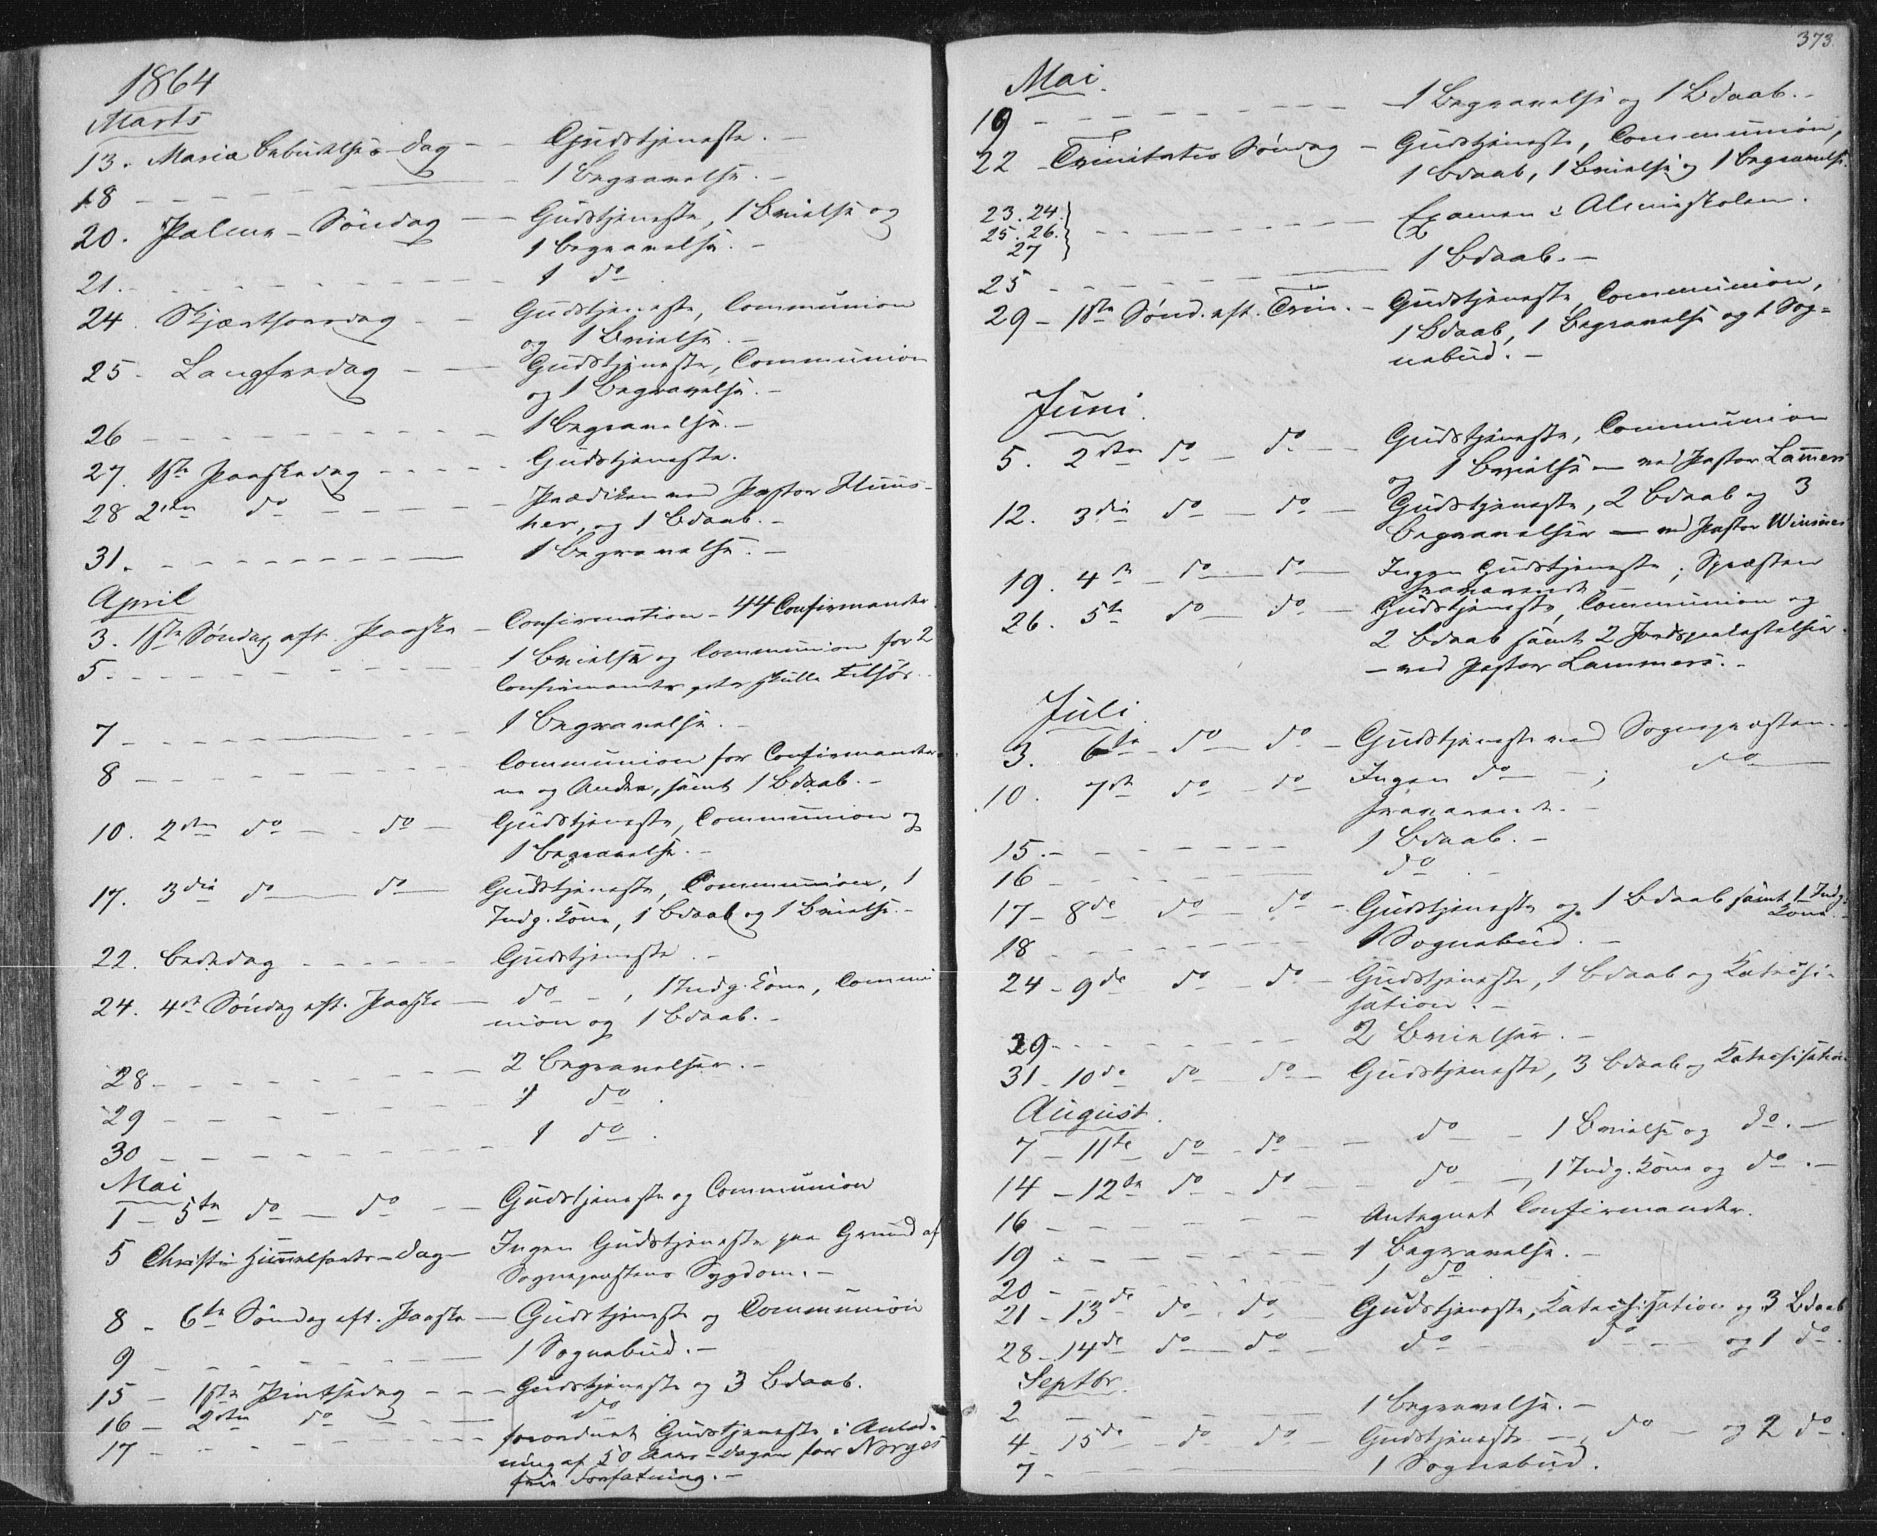 1864
Marts
13. Mariæ bebudelses-Dag - - Gudstjeneste. -
18 - - - - - - - 1 Begravelse. -
20. Palme-Søndag - - Gudstjeneste, 1 Vielse og
1 begravelse. -
21. - - - - - - - 1 do
24. Skjærthorsdag - - Gudstjeneste, Communion
og 1 Vielse. -
25. Langfredag - - Gudstjeneste, Communion
og 1 Begravelse. -
26 - - - - - - - 1 begravelse. -
27. 1ste Paaskedag - - - - - Gudstjeneste.
28 2den do - - - - - Prædiken ved Pastor
og 1 Bdaab. -
31. - - - - - - - 1 Begravelse. -
April
3. 1ste Søndag eft. Paaske - Confirmation - 44 Confirmander.
5. - - - - - - - 1 Vielse og Communion for 2
Confirmander skulle tilsøs.
7 - - - - - - - 1 Begravelse. -
8 - - - - - - - Communion for Confirmander-
ne og Andre, samt 1 Bdaab. -
10. 2den do - - do - Gudstjeneste, Communion og
1 Begravelse. -
17. 3die do - do - Gudstjeneste, Communion, 1
Indg. Kone, 1 Bdaab og 1 Vielse. -
22. Bededag - - - - - - Gudstjeneste. -
24. 4de Søndag eft. Paaske - do - , 1 Indg. Kone, Commu
nion og 1 Bdaab. -
28 - - - - - - - 2 Begravelser. -
29 - - - - - - - 1 do.
30 - - - - - - - 1 do.
Mai
1 - 5te do - do - - Gudstjeneste og Communion
5 Christi Himmelfarts-Dag - Ingen Gudstjeneste paa Grund af
Sognepræstens Sygdom. -
8 - 6te Søndag eft. Paaske - Gudstjeneste og Communion
9 - - - - - - - 1 Sognebud. -
15 - 1ste Pintsedag - - - Gudstjeneste og 3 Bdaab.
16 - 2den do - - - do
17 - - - - - - - forordnet Gudstjeneste i Anled-
ning af 50 Aars-Dagen for Norges
frie Forfatning. -
373.
Mai.
19 - - - - - - - 1 Begravelse og 1 Bdaab. -
22 - Trinitatis Søndag - Gudstjeneste, Communion,
1 Bdaab, 1 Vielse og 1 begravelse.
23. 24.
25. 26. - - - - - Examen i Almueskolen.
27
25 - - - - - - - 1 Bdaab. -
29 - 1ste Sønd. eft. Trin. - Gudstjeneste, Communion,
1 Bdaab, 1 Begravelse og 1 Sog-
nebud. -
Juni.
5. 2den do - do - - Gudstjeneste, Communion
og 1 Vielse - ved Pastor Lammers
12. 3die do - do - Gudstjeneste, 2 Bdaab og 3
Begravelser - ved Pastor Winsnes
19. 4de - do - do - Ingen Gudstjeneste; Spræsten
fraværende -
26. 5te do - do - Gudstjeneste, Communion og
2 Bdaab samt 2 Jordpaakastelser
- ved Pastor Lammers. -
Juli.
3. 6te - do - do - Gudstjeneste ved Sognepræsten.
10. 7de do - do Ingen do - ; do -
fraværende. -
15. - - - - - - - 1 Bdaab. -
16 - - - - - - - do.
17 - 8de do - do - Gudstjeneste og 1 Bdaab samt 1 Indg.
Kone. -
18 - - - - - - - 1 Sognebud. -
24 - 9de do - do - Gudstjeneste, 1 Bdaab og Katechi-
sation. -
29 - - - - - - - 2 Vielser. -
31 - 10de do - do - Gudstjeneste, 3 Bdaab og Katechisation
August.
7 - 11te do - do - - do - - 1 Vielse og do. -
14 - 12te do - do - - do - , 1 Indg. Kone og do. -
16 - - - - - - - Antegnet Confirmander.
19 - - - - - - - 1 Begravelse. -
20 - - - - - - - 1 do.
21 - 13de do - do. Gudstjeneste, Katechisation og 3 Bdaab
28 - 14de do - do - do - do - - og 1 do.
Septbr.
2 - - - - - - - 1 Begravelse. -
4 - 15de - do - do Gudstjeneste - , do - og 2 do.
7 - - - - - - - 1 Sognebud.